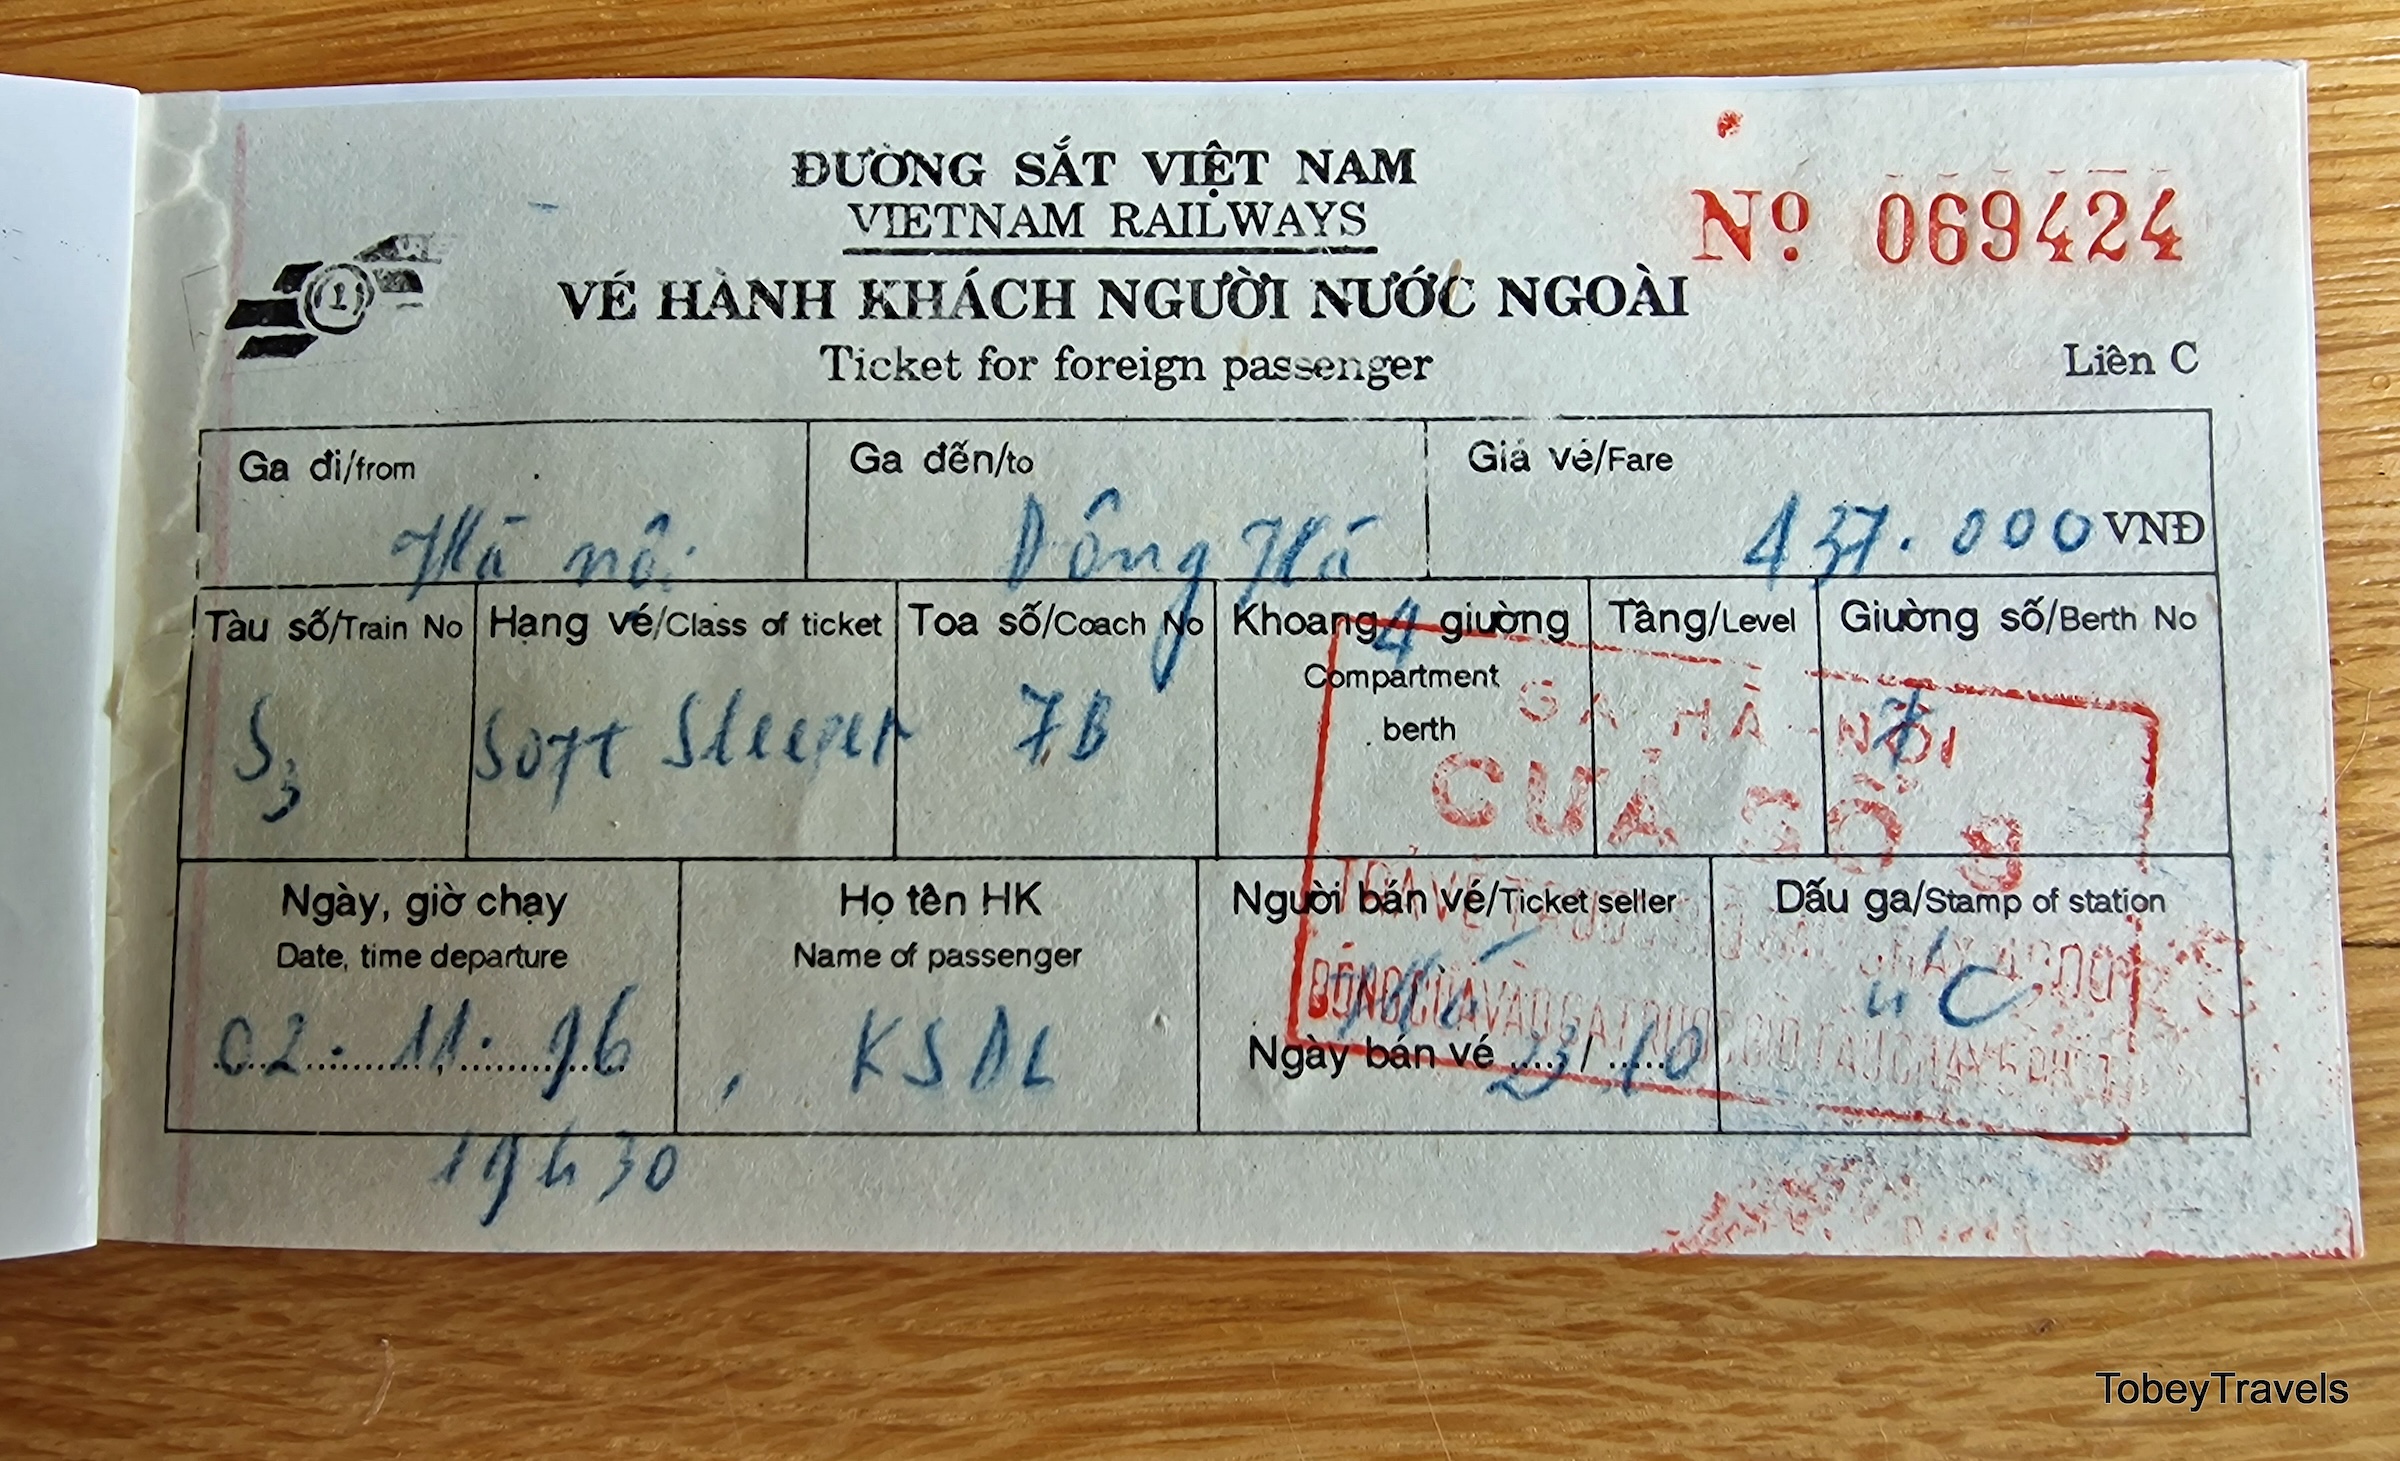 ĐƯỜNG SẮT VIỆT NAM
VIETNAM RAILWAYS
Nº 069424
1
VÉ HÀNH KHÁCH NGƯỜI NƯỚC NGOÀI
Ticket for foreign passenger
Liên C
Ga đi/from
Ga đến/to
Giá vé/Fare
Hà nội
Đông Hà
437.000 VNĐ
Tàu số/Train No
Hạng vé/Class of ticket
Toa số/Coach No
Khoang 4 giường
Compartment
berth
Tầng/Level
Giường số/Berth No
S3
Soft Sleeper
7B
7
GA HÀ NỘI
CỬA SỐ 9
Ngày, giờ chạy
Date, time departure
Họ tên HK
Name of passenger
Người bán vé/Ticket seller
Dấu ga/Stamp of station
02.11.96
KSDL
Ngày bán vé 23/10
ĐÓNG CỬA VÀO GA TRƯỚC GIỜ TÀU CHẠY 5 PHÚT
19h30
TobeyTravels